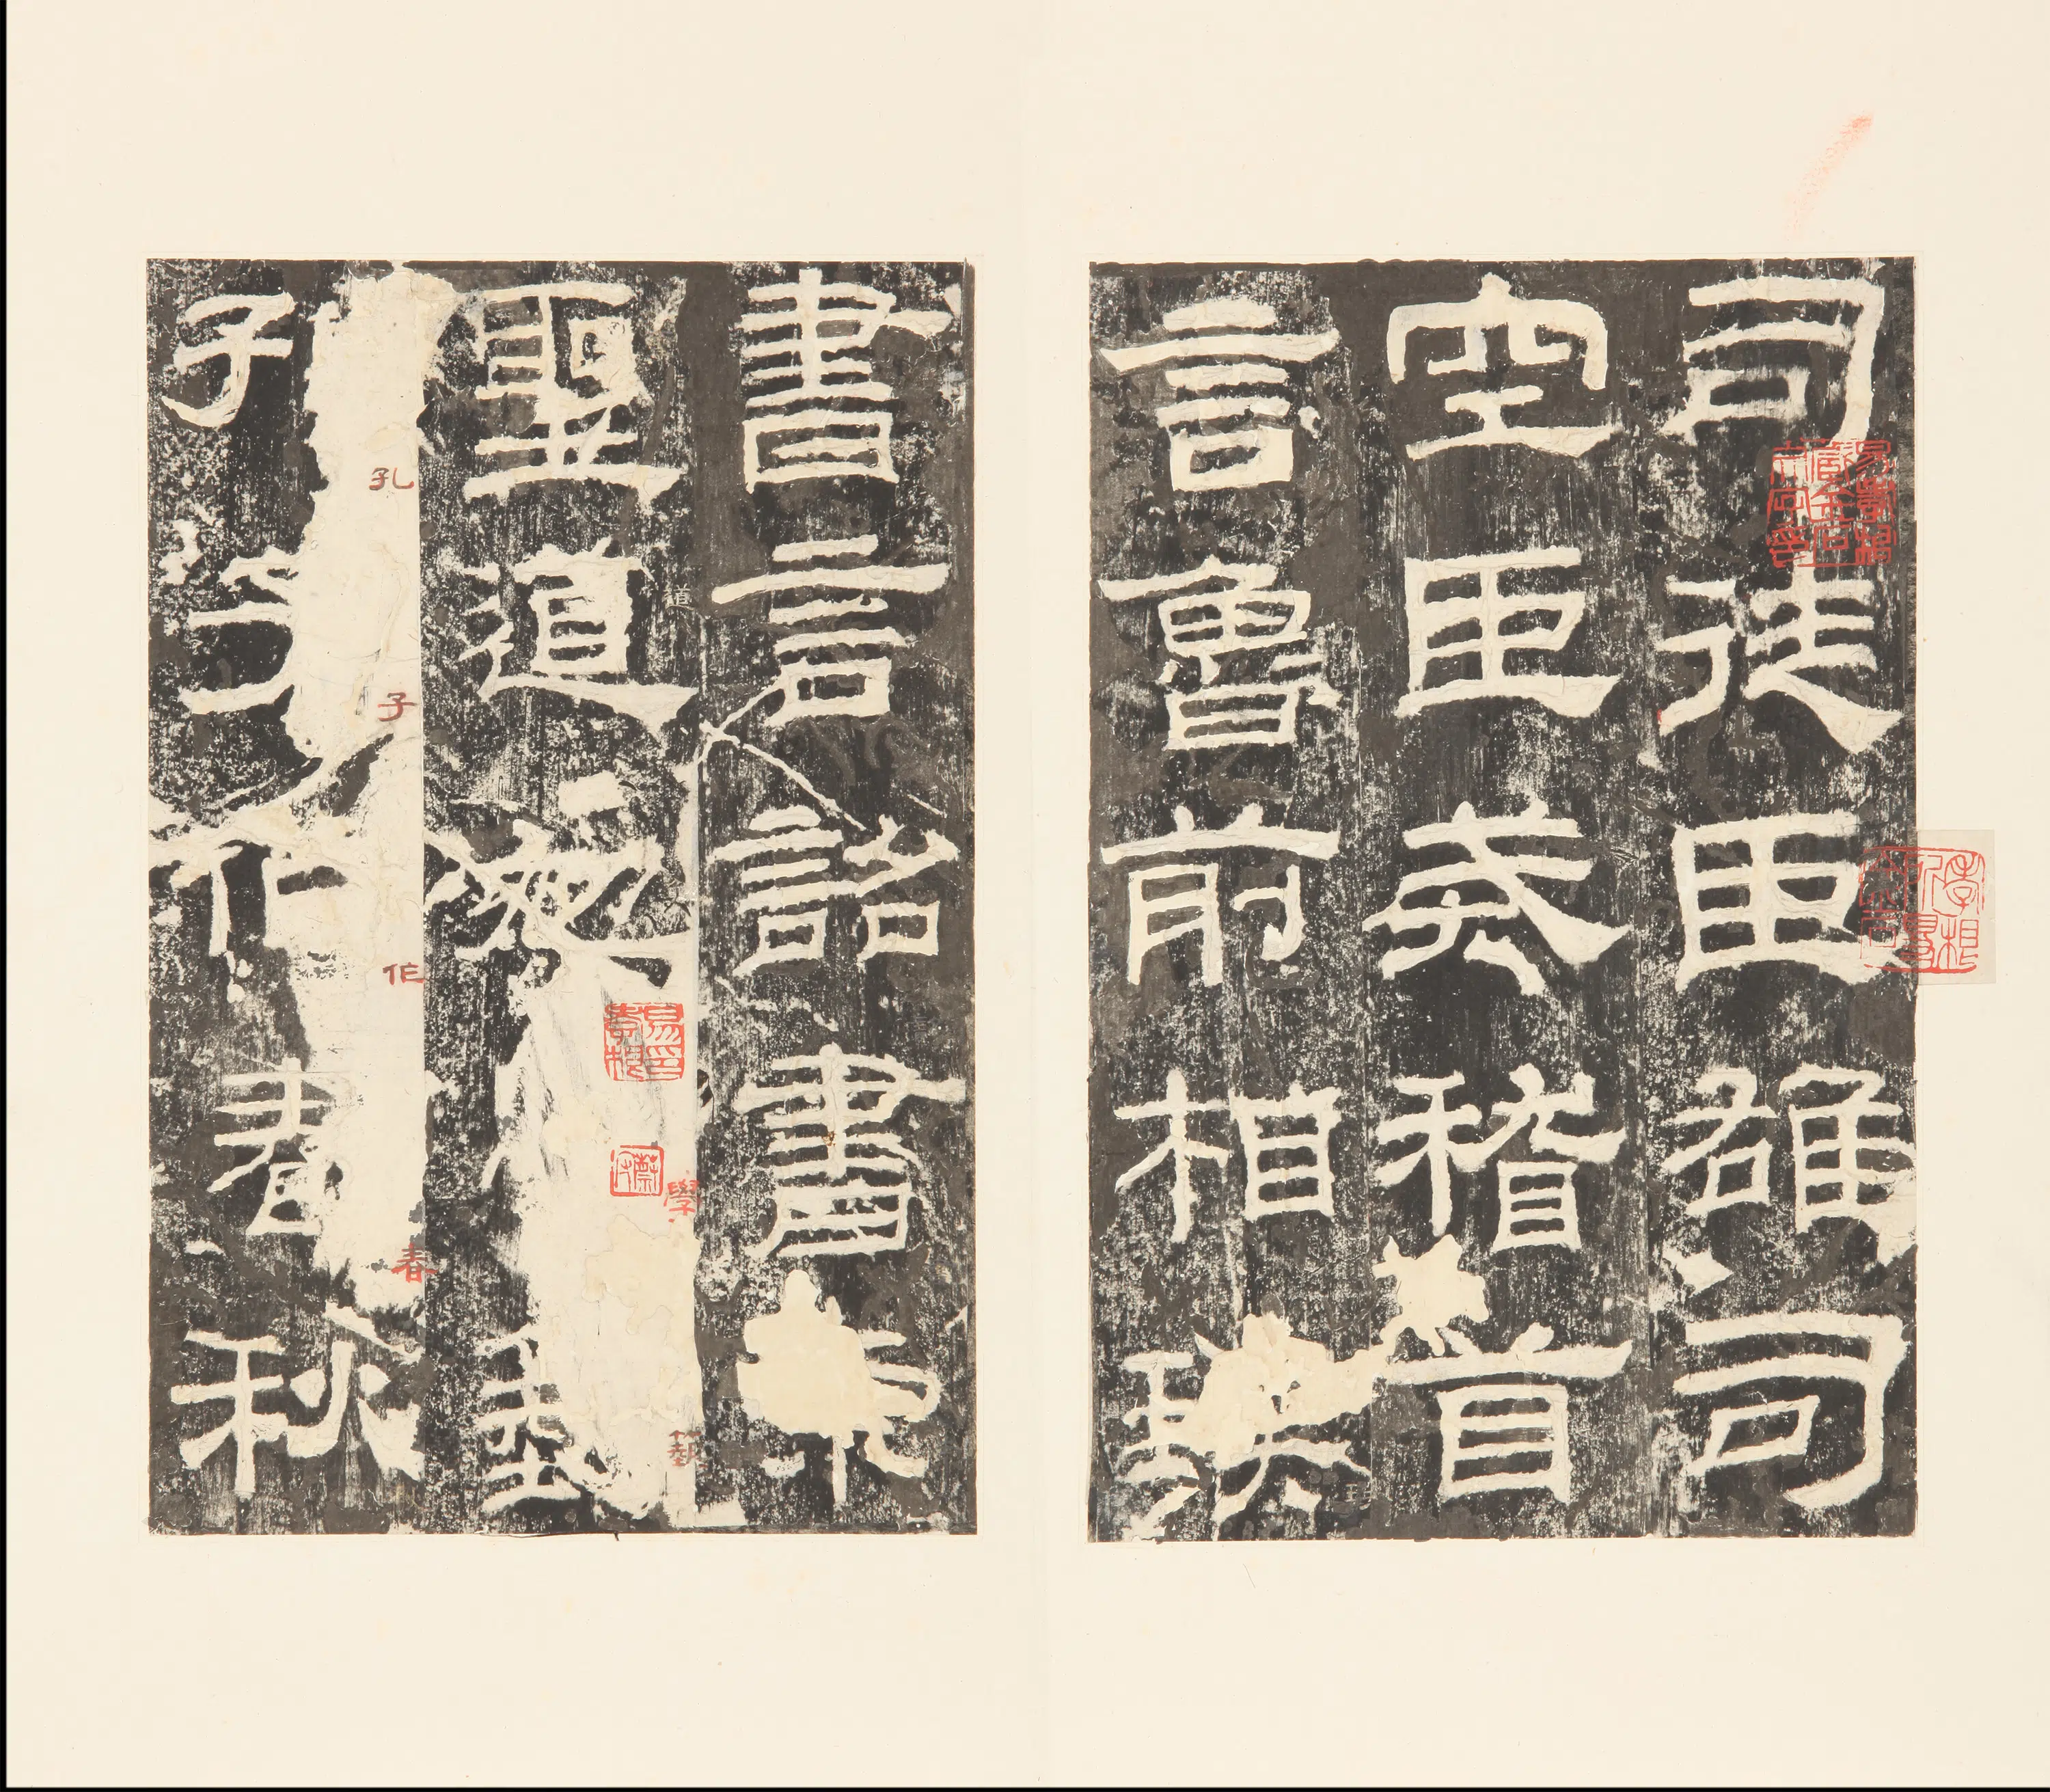 司徒臣雄司
空臣戒稽首
言魯前相瑛
書言詔書崇
聖道勉藝
孔子作春秋
道
學
藝
孔
子
作
春